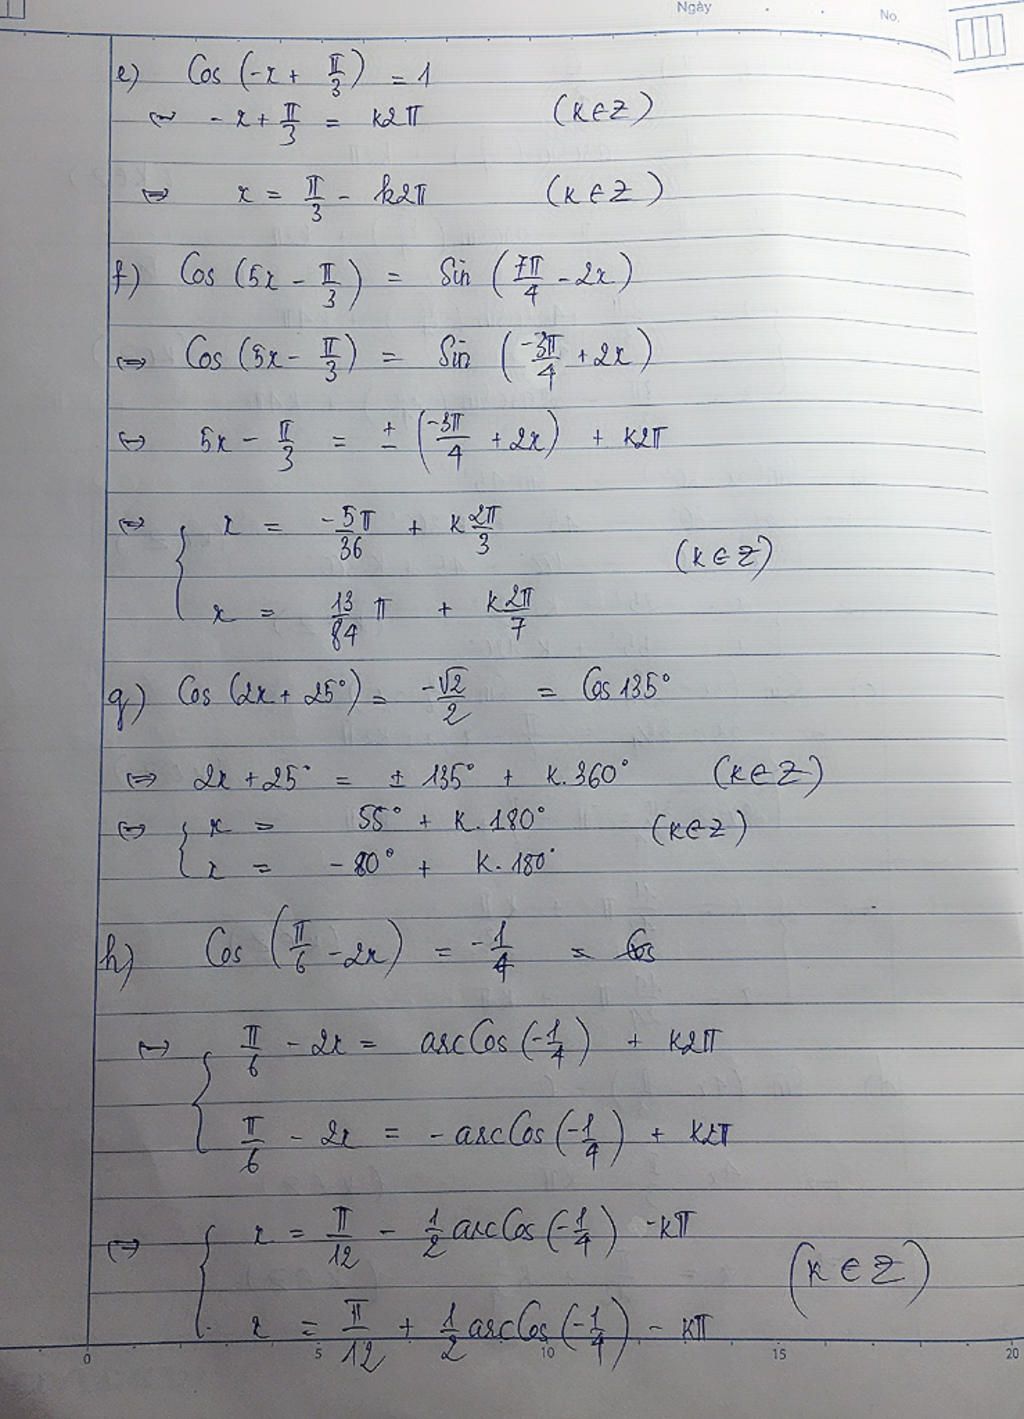 Ngày
No.
e) Cos (-x + π/3) = 1
⇔ -x + π/3 = k2π (k∈Z)
⇔ x = π/3 - k2π (k∈Z)
f) Cos (5x - π/3) = Sin (7π/4 - 2x)
⇔ Cos (5x - π/3) = Sin (-3π/4 + 2x)
⇔ 5x - π/3 = ± (-3π/4 + 2x) + k2π
⇔ { x = -5π/36 + k2π/3
(k∈Z)
x = 13/84 π + k2π/7
g) Cos (2x + 25°) = -√2/2 = Cos 135°
⇔ 2x + 25° = ± 135° + k.360° (k∈Z)
⇔ { x = 55° + k.180° (k∈Z)
x = -80° + k.180°
h) Cos (π/6 - 2x) = -1/4 = Cos
⇔ { π/6 - 2x = arcCos (-1/4) + k2π
π/6 - 2x = -arcCos (-1/4) + k2π
⇔ { x = π/12 - 1/2 arcCos (-1/4) - kπ
(k∈Z)
x = π/12 + 1/2 arcCos (-1/4) - kπ
0 5 10 15 20